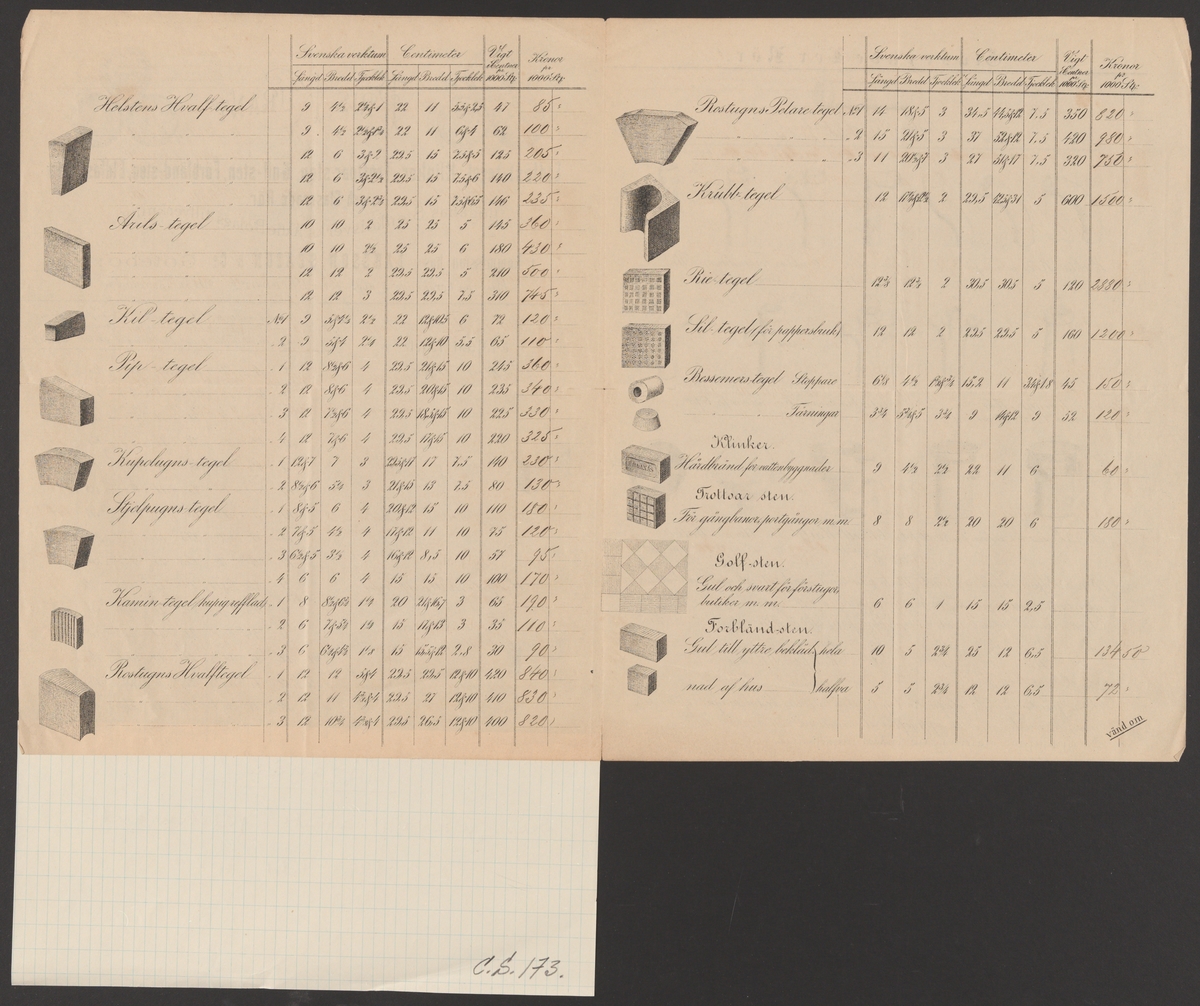 Svenska verktum Centimeter Vigt Centner pr 1000 St. Kronor pr 1000 St.
Längd Bredd Tjocklek Längd Bredd Tjocklek
Helstens Hvalf-tegel 9 4½ 22 11 47 85
9 4½ 22 11 6&4 62 100
12 6 3&2 29.5 15 7.5&5 125 205
12 6 3&2½ 29.5 15 7.5&6 140 220
12 6 29.5 15 7.5&6.5 146 235
Arils-tegel 10 10 2 25 25 5 145 360
10 10 2½ 25 25 6 180 430
12 12 2 29.5 29.5 5 210 500
12 12 3 29.5 29.5 7.5 310 745
Kil-tegel No1 9 2½ 22 12&10.5 6 72 120
2 9 5&4 22 12&10 5.5 65 110
Pip-tegel 1 12 4 29.5 21&15 10 245 360
2 12 8&6 4 29.5 20&15 10 235 340
3 12 7½&6 4 29.5 18.5&15 10 225 330
4 12 7&6 4 29.5 17&15 10 220 325
Kupolugns-tegel 1 12&7 7 3 17 7.5 140 230
2 8½&6 3 21&15 13 7.5 80 130
Stjelpugns-tegel 1 8&5 6 4 20&12 15 10 110 180
2 7&5 4½ 4 17&12 11 10 75 120
3 6½&5 3½ 4 16&12 8,5 10 57 95
4 6 6 4 15 15 10 100 170
Kamin-tegel 1 8 20 3 65 190
2 6 15 17&13 3 35 110
3 6 15 15.5&12 2.8 30 90
Rostugns Hvalftegel 1 12 12 5&4 29.5 29.5 12&10 420 840
2 12 11 29.5 27 12&10 410 830
3 12 29.5 26.5 12&10 400 820
Svenska verktum Centimeter Vigt Centner pr 1000 St. Kronor pr 1000 St.
Längd Bredd Tjocklek Längd Bredd Tjocklek
Rostugns-Pelare-tegel No1 14 18&5 3 34.5 44.5&12 7.5 350 820
2 15 21&5 3 37 52&12 7.5 420 980
3 11 3 27 51&17 7.5 320 750
Krubb-tegel 12 2 29,5 5 600 1500
Rie-tegel 2 30,5 30,5 5 120 2880
Sil-tegel (för pappersbruk) 12 12 2 29,5 29,5 5 160 1200
Bessemers-tegel Stoppare 4½ 15,2 11 45 150
Tärningar 9 14&12 9 32 120
Klinker.
Hårdbränd för vattenbyggnader 9 4½ 2½ 22 11 6 60
Trottoar-sten.
För gångbanor, portgångar m. m. 8 8 2½ 20 20 6 180
Golf-sten.
Gul och svart för förstugor,
butiker m. m. 6 6 1 15 15 2,5
Forbländ-sten.
Gul till yttre bekläd- hela 10 5 2¾ 25 12 6,5 134 50
nad af hus halfva 5 5 2¾ 12 12 6,5 72
vänd om
C.S. 173.